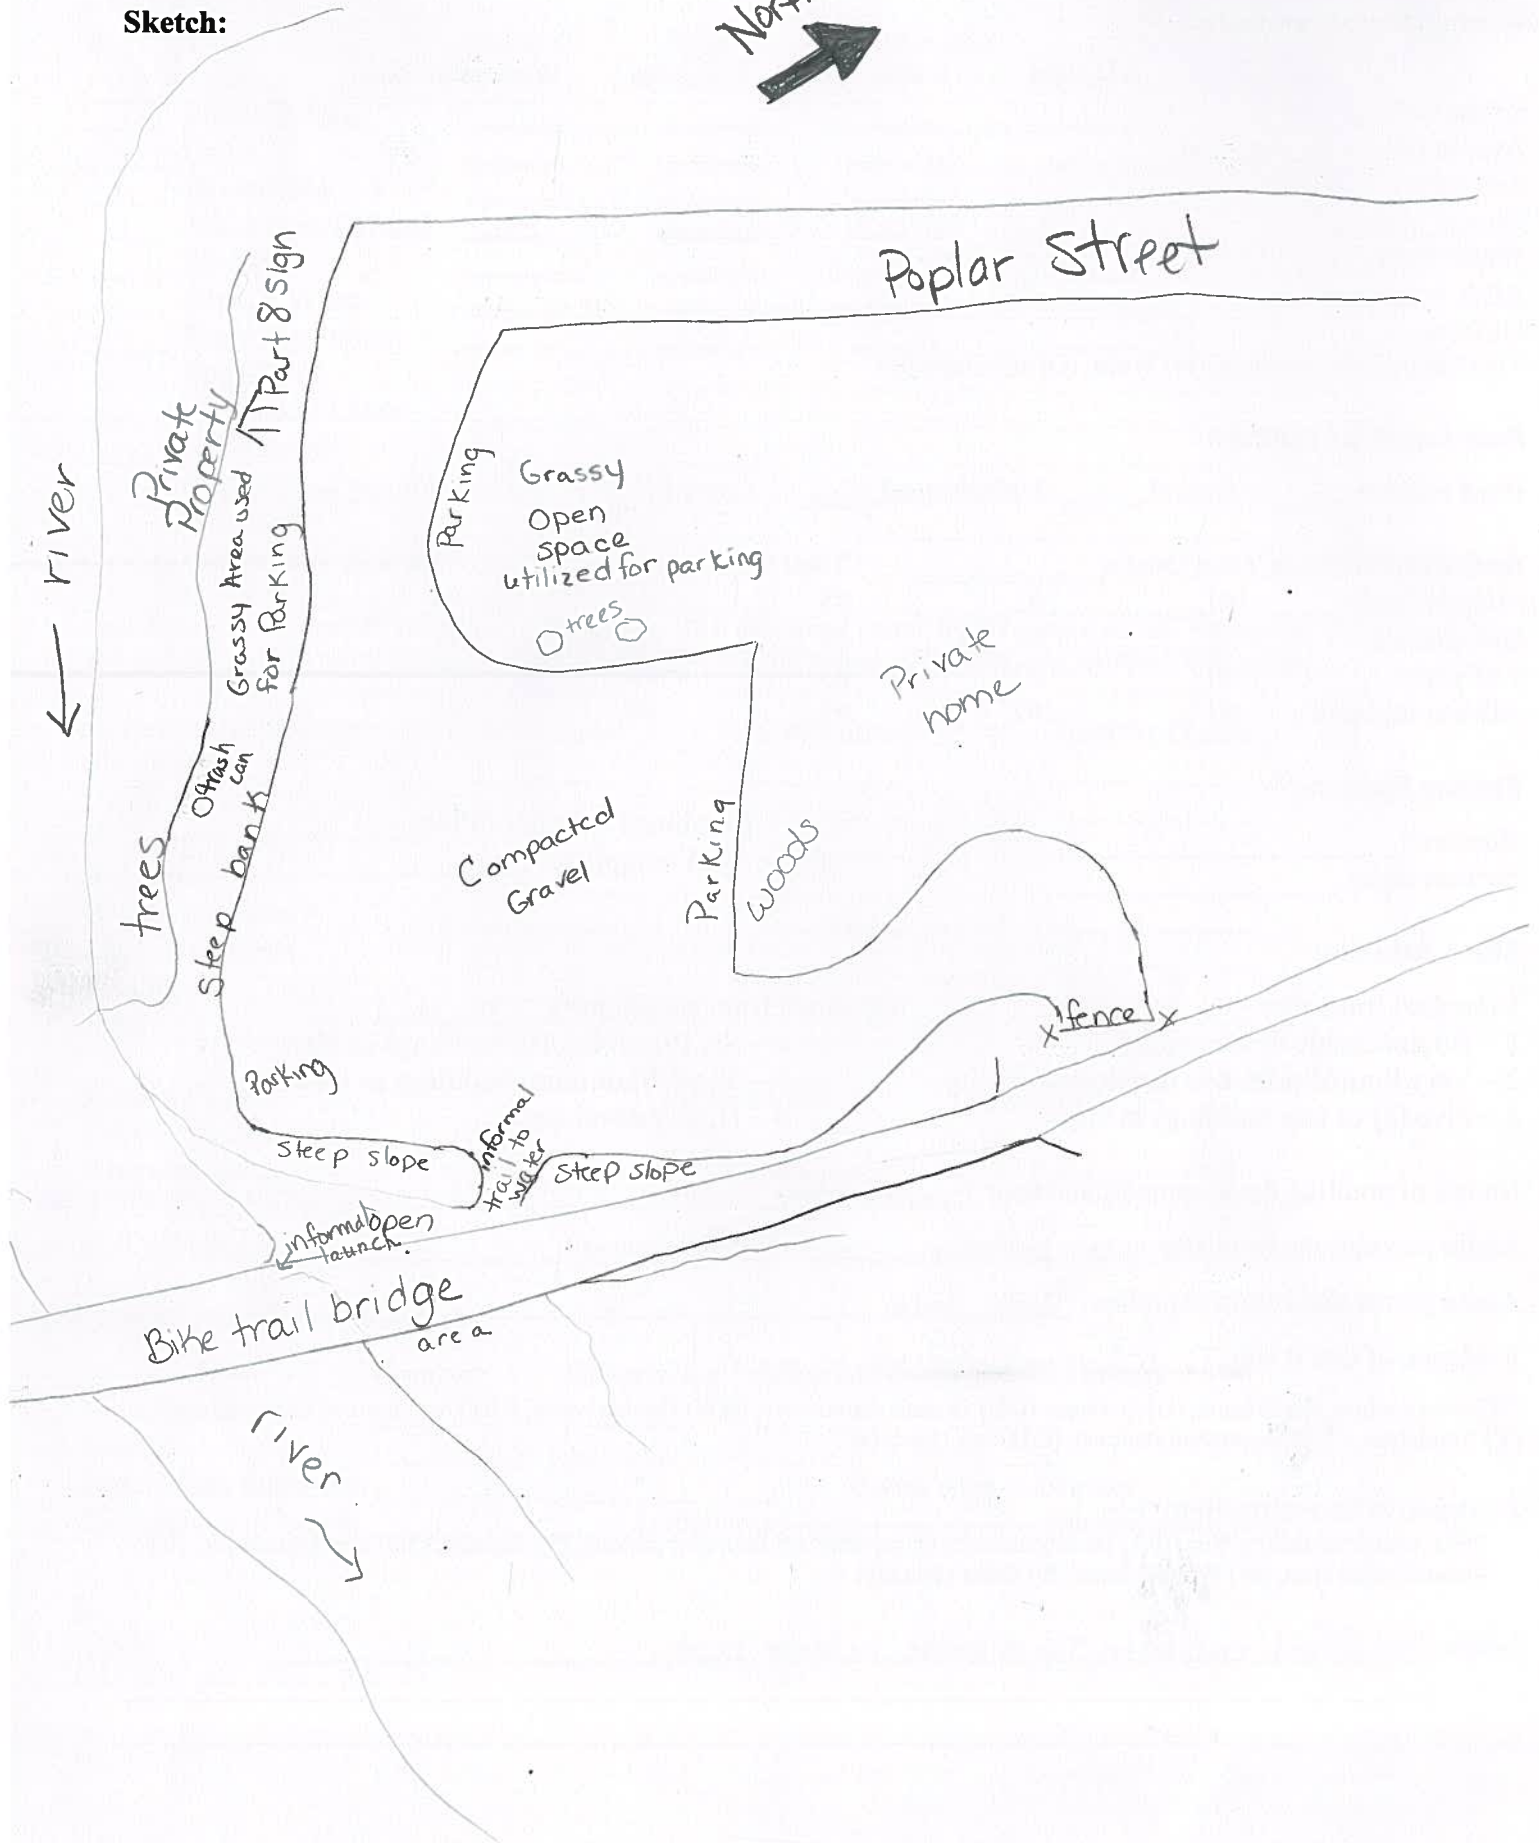 Sketch:
Poplar Street
Part 8 sign
Private
Property
river
Grassy Area used
for Parking
Parking
Grassy
Open
space
utilized for parking
trees
Private
home
trash
can
Steep bank
trees
Compacted
Gravel
Parking
Woods
fence
Parking
Steep slope
informal
trail to
water
Steep slope
informal open
launch
Bike trail bridge
area
river